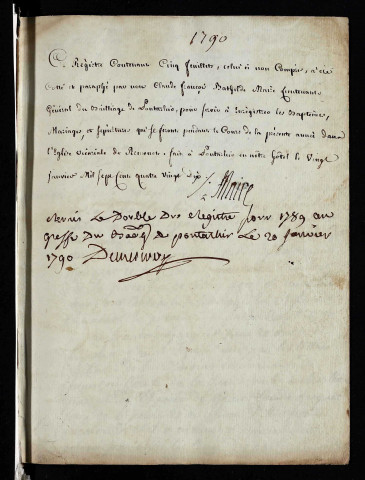 1790
Ce Registre Contenant Cinq feuillets, celui ci non Compris, a été
Cotté et paraphé par nous Claude françois Bathilde Maire Lieutenant
Général du Bailliage de Pontarlier, pour servir à Enregistrer les Baptêmes,
Mariages, et sépultures qui se feront pendant le Cours de la présente année dans
l'Eglise de Remonot. fait à Pontarlier en notre hôtel le Vingt
Janvier Mil Sept Cent quatre Vingt dix
Maire
le Double Du Registre pour 1789 au
greffe Du de pontarlier Le 20 janvier
1790